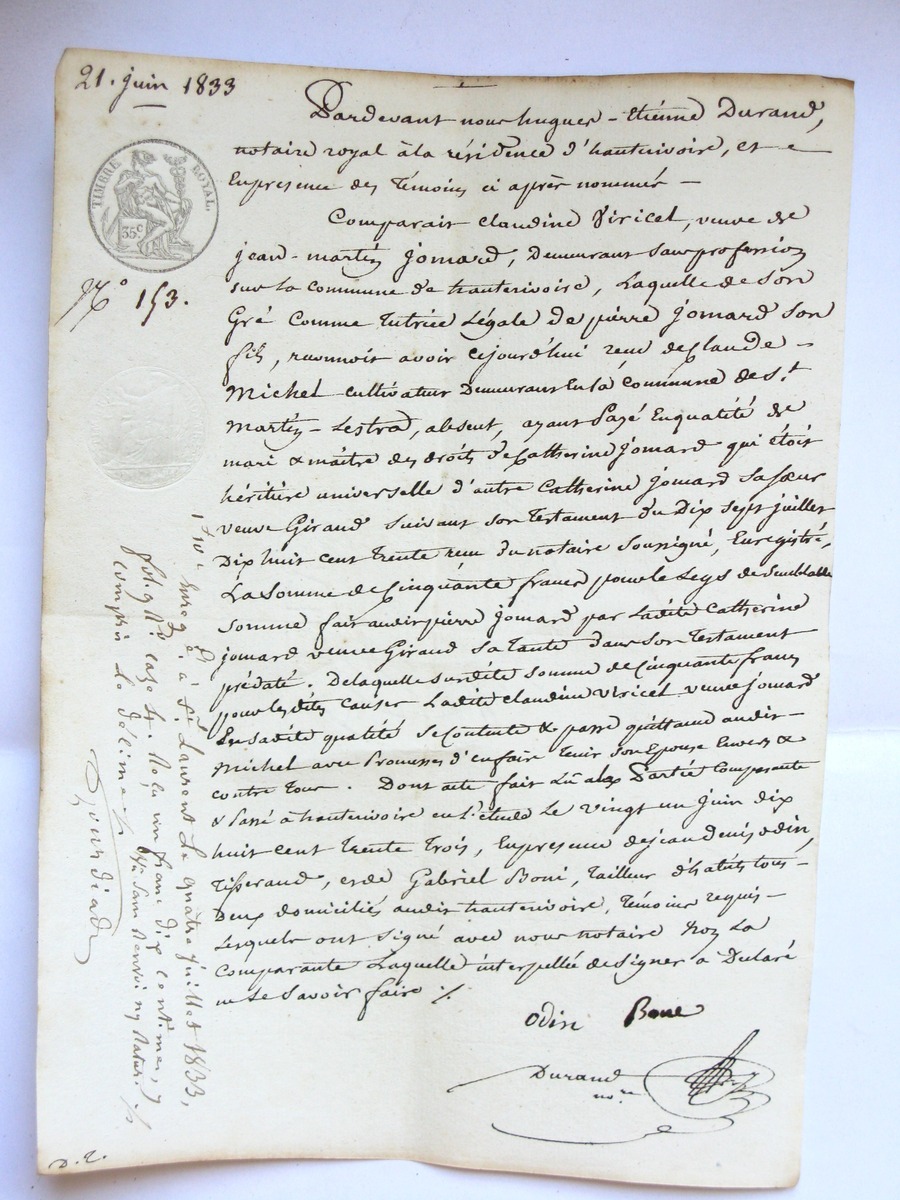 21. juin 1833
TIMBRE ROYAL.
35c
N.° 153.
Pardevant nous hugues - étiénne Durand,
notaire royal à la résidence d'hauterivoire, et
En presence des témoins ci après nommés —
Comparait Claudine Viricel, veuve de
jean-martin jomard, demeurant sans profession
sur la commune de hauterivoire, Laquelle de Son
Gré comme tutrice Légale de pierre jomard Son
fils, reconnoit avoir cejourd'hui reçu de Claude -
Michel cultivateur Demeurant En la commune de S.t
Martin-Lestra, absent, ayant Payé En qualité de
mari & maître des droits de Catherine jomard qui étoit
héritière universelle d'autre Catherine jomard sa Soeur
veuve Giraud suivant son Testament du Dix sept juillet
Dix huit cent trente reçu du notaire Soussigné, Enregistré,
La Somme de Cinquante francs pour le Legs de Semblable
Somme fait audit pierre jomard par Ladite Catherine
jomard veuve Giraud sa tante dans son Testament
prédaté. De laquelle susdite somme de Cinquante francs
pour lesdites causes Ladite Claudine Viricel veuve jomard
En sadite qualité se Contente & passe quittance audit -
Michel avec Promesses d'en faire tenir son Epouse Envers &
contre tous. Dont acte fait Lu aux Partie Comparante
& Passé à hauterivoire en l'étude Le vingt un juin dix
huit cent trente trois, En presence de jean denis odin,
Tisserand, et de Gabriel Boni, Tailleur d'habits tous -
Deux domiciliés audit hauterivoire, témoins requis -
Lesquels ont signé avec nous notaire Non La
Comparante Laquelle interpellée de signer a Déclaré
ne Le Savoir faire ./.
odin Bone
Durand
no.re
Enreg.é à S.t Laurent Le quatre juillet 1833,
fol. 9 R.o case 4. Reçu un franc dix centimes,
compris Le décime. Sans renvoi ny Ratur.
D. 2.